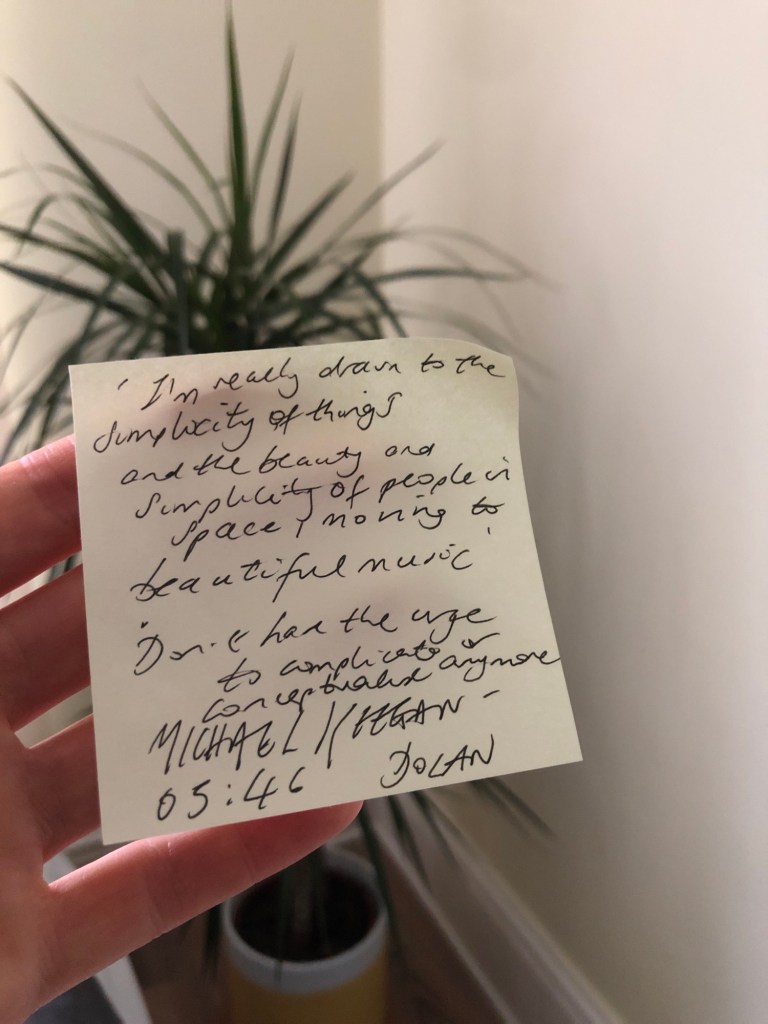 ' I'm really drawn to the
simplicity of things
and the beauty and
simplicity of people in
space, moving to
beautiful music'
· Don't have the urge
to complicate or
conceptualise anymore
MICHAEL KEEGAN -
DOLAN
05:46